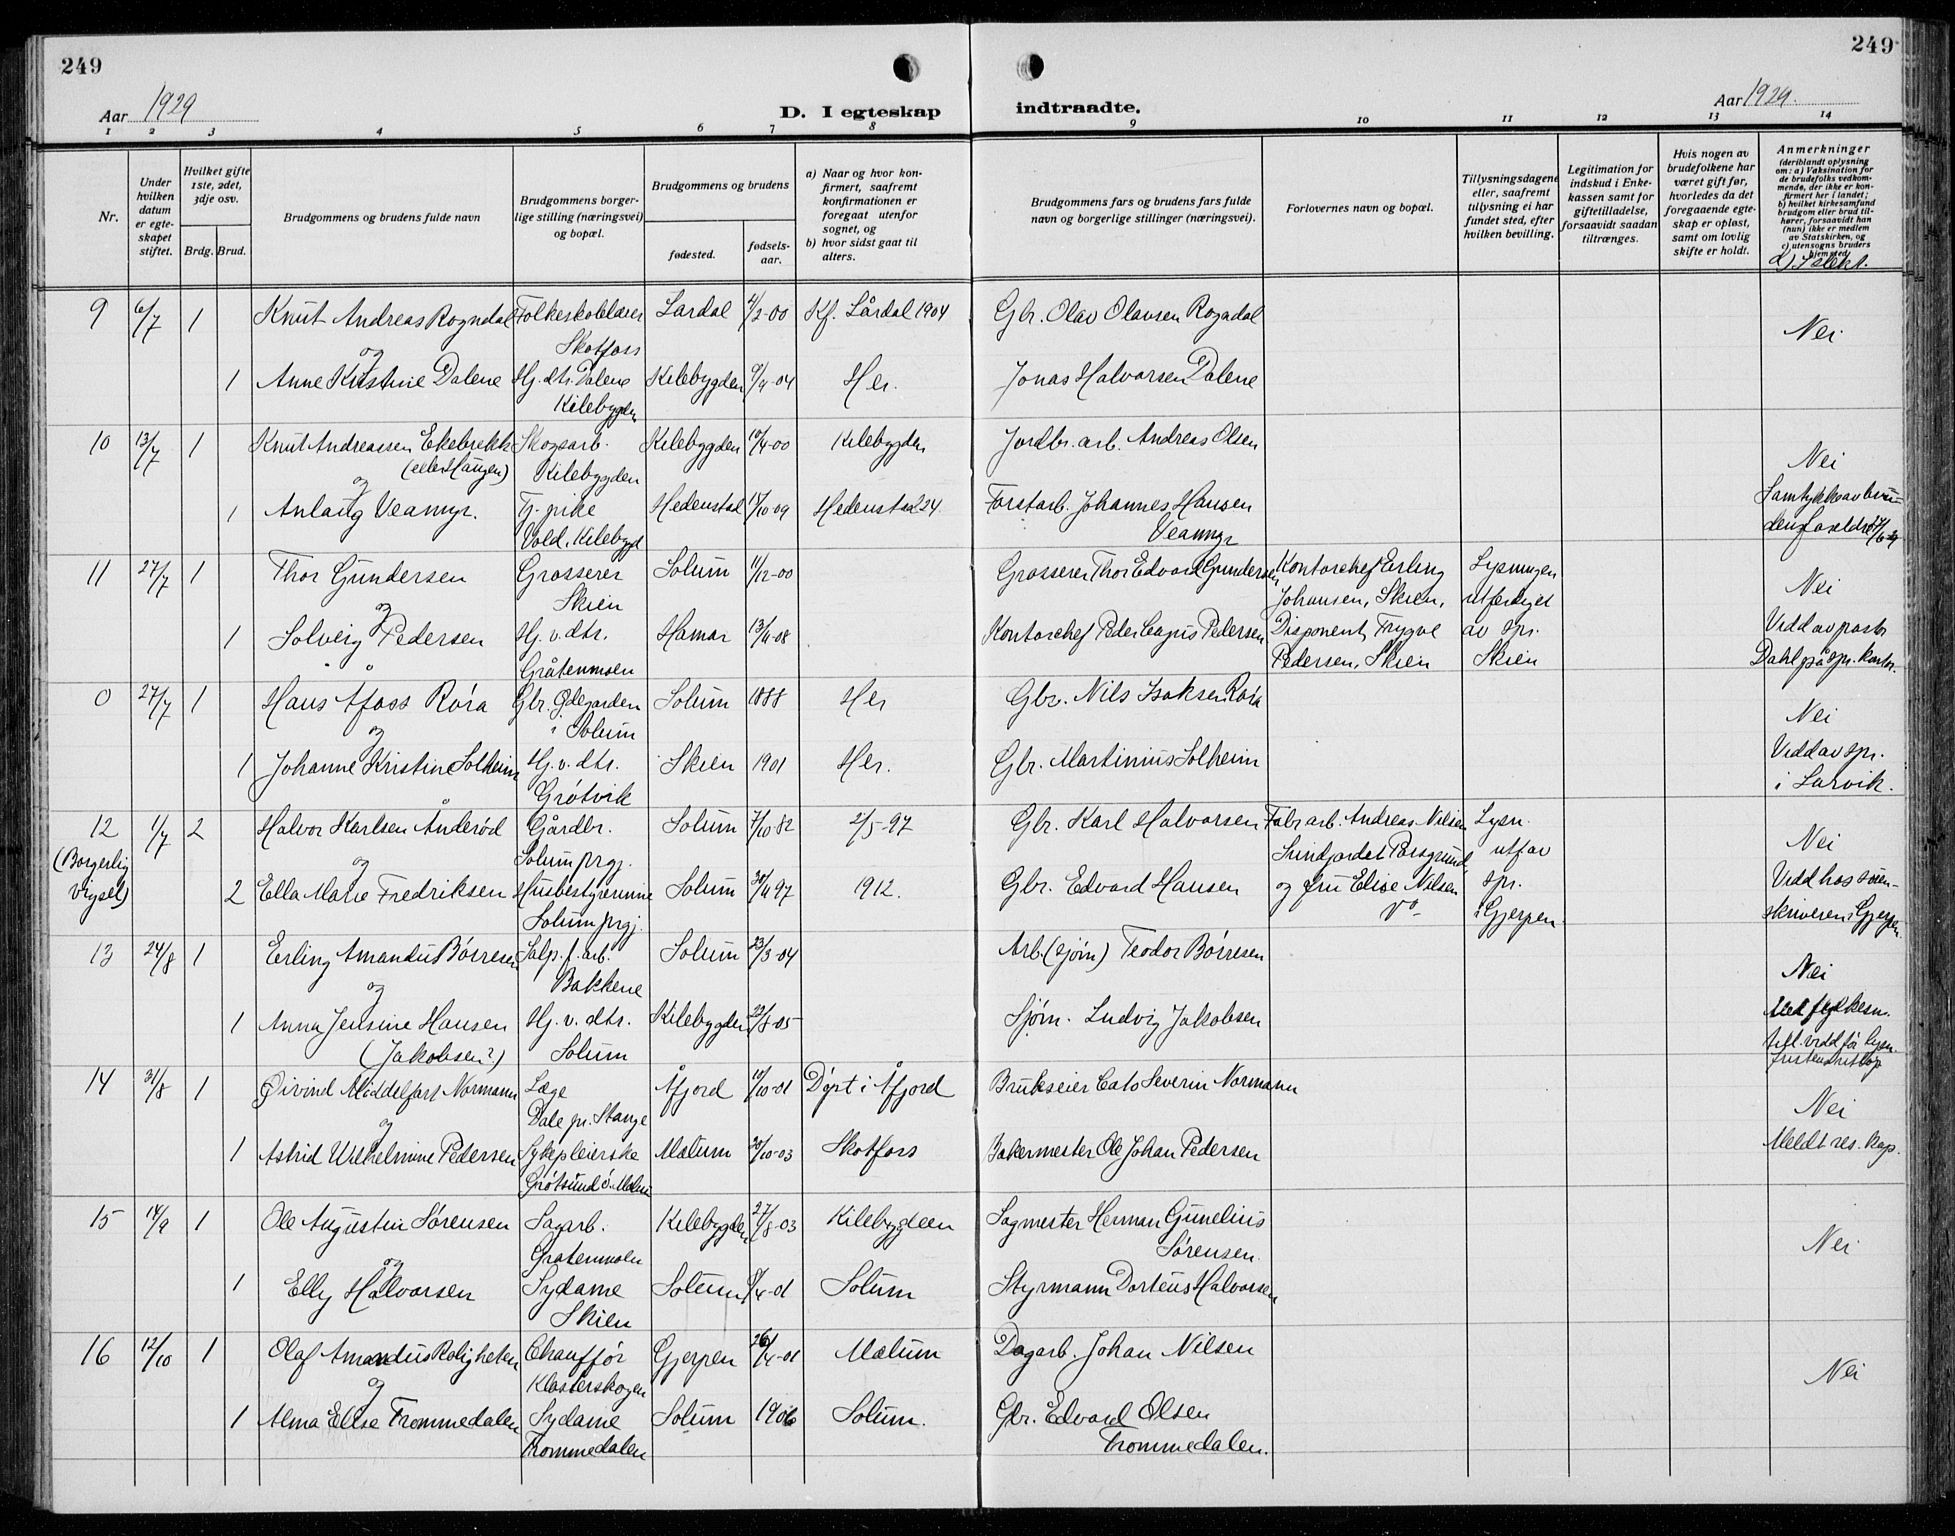 249
249
Aar 1929
D. I egteskap
indtraadte.
Aar 1929.
1 2 3 4 5 6 7 8 9 10 11 12 13 14
Nr.
Under hvilken datum er egteskapet stiftet.
Hvilket gifte 1ste, 2det, 3dje osv.
Brdg. Brud.
Brudgommens og brudens fulde navn
Brudgommens borgerlige stilling (næringsvei) og bopæl.
Brudgommens og brudens
fødested.
fødselsaar.
a) Naar og hvor konfirmert, saafremt konfirmationen er foregaat utenfor sognet, og
b) hvor sidst gaat til alters.
Brudgommens fars og brudens fars fulde navn og borgerlige stillinger (næringsvei).
Forlovernes navn og bopæl.
Tillysningsdagene eller, saafremt tillysning ei har fundet sted, efter hvilken bevilling.
Legitimation for indskud i Enkekassen samt for giftetilladelse, forsaavidt saadan tiltrænges.
Hvis nogen av brudefolkene har været gift før, hvorledes da det foregaaende egteskap er opløst, samt om lovlig skifte er holdt.
Anmerkninger
(deriblandt oplysning om: a) Vaksination for de brudefolks vedkommende, der ikke er konfirmert her i landet; b) hvilket kirkesamfund brudgom eller brud tilhører, forsaavidt han (hun) ikke er medlem av Statskirken, og c) utensogns bruders hjemsted
d) I slekt.
9 6/7 1 Knut Andreas Rogndal Folkeskolelærer Lardal 4/2-00 Kf. Lårdal 1904 Gbr. Olav Olavsen Rogndal
og Skotfoss Nei
1 Anne Kristine Dalene Hj. dtr. Dalene Kilebygden 9/9-04 Her. Jonas Halvorsen Dalene
Kilebygden
10 13/7 1 Knut Andreassen Ekebrekk Skogsarb. Kilebygden 10/4-00 Kilebygden Jordbr. arb. Andreas Olsen
(eller Haugen) Kilebygden Nei
og
1 Anlaug Veamyr. Tj. pike Hedenstal 14/10-09 Hedenstad 24. Forstarb. Johannes Hansen Samtykke av
Vold, Kilebygd Veamyr
11 27/7 1 Thor Gundersen Grosserer Solum 11/12-00 Grosserer Thor Edvard Gundersen Kontorchef Erling Lysningen
og Skien Johansen, Skien, utferdiget Nei
1 Solveig Pedersen Hj. v. dtr. Hamar 13/4-08 Kontorchef Peder Pedersen Disponent Trygve av spr. Vidd av pastor
" " Gråtenmoen Pedersen, Skien Skien Dahl på spr. kontor.
0 27/7 1 Hans Afoss Røra Gbr. Ødegarden Solum 1888 Her Gbr. Nils Isaksen Røra
og i Solum Nei
1 Johanne Kristine Solheim Hj. v. dtr. Skien 1901 Her. Gbr. Martinius Solheim Vidd av spr.
Grøtvik i Larvik.
12 1/7 2 Halvor Karlsen Ånderød Gårdbr. Solum 7/10 82 2/5-97 Gbr. Karl Halvorsen Fabr arb. Andreas Nilsen Lysn.
(Borgerlig og Solum prgj. Porsgrund, utf av Nei
vigsel) 2 Ella Marie Fredriksen Husbestyrerinne Solum 30/4 97 1912. Gbr. Edvard Hansen og fru Elise Nilsen spr. Vidd hos soren-
Solum prgj. i Gjerpen. skriveren i Gjerpen.
13 24/8 1 Erling Amandus Børresen Salp. f. arb. Solum 23/3-04 Arb. (sjøm) Teodor Børresen
og Bakkene Nei
1 Anna Jensine Hansen Hj. v. dtr. Kilebygden 22/8-05 Sjøm. Ludvig Jakobsen Med fylkesm.
(Jakobsen?) Solum till. vidd før lysn.
14 31/8 1 Øivind Middelfart Normann Læge Åfjord 10/10-01 Døpt i Åfjord Brukseier Cato Severin Normann
og Dale pr. Stange Nei
1 Astrid Wilhelmine Pedersen Sykepleierske Mælum 20/10-03 Skotfoss Bakermester Ole Johan Pedersen Meldt res. kap.
Grøtsund i Mælum
15 14/9 1 Ole Augustin Sørensen Sagarb. Kilebygden 27/8-03 Kilebygdeen Sagmester Herman Gunelius
og Gråtenmoen Sørensen. Nei
1 Elly Halvorsen Sydame Solum 9/4-01 Solum Styrmann Dorteus Halvorsen
Skien
16 12/10 1 Olaf Amandus Roligheten Chauffør Gjerpen 26/4-01 Mælum Dagarb. Johan Nilsen
og Klosterskogen Nei
1 Alma Elise Trommedalen Sydame Solum 1906 Solum. Gbr. Edvard Olsen
Trommedalen Trommedalen.